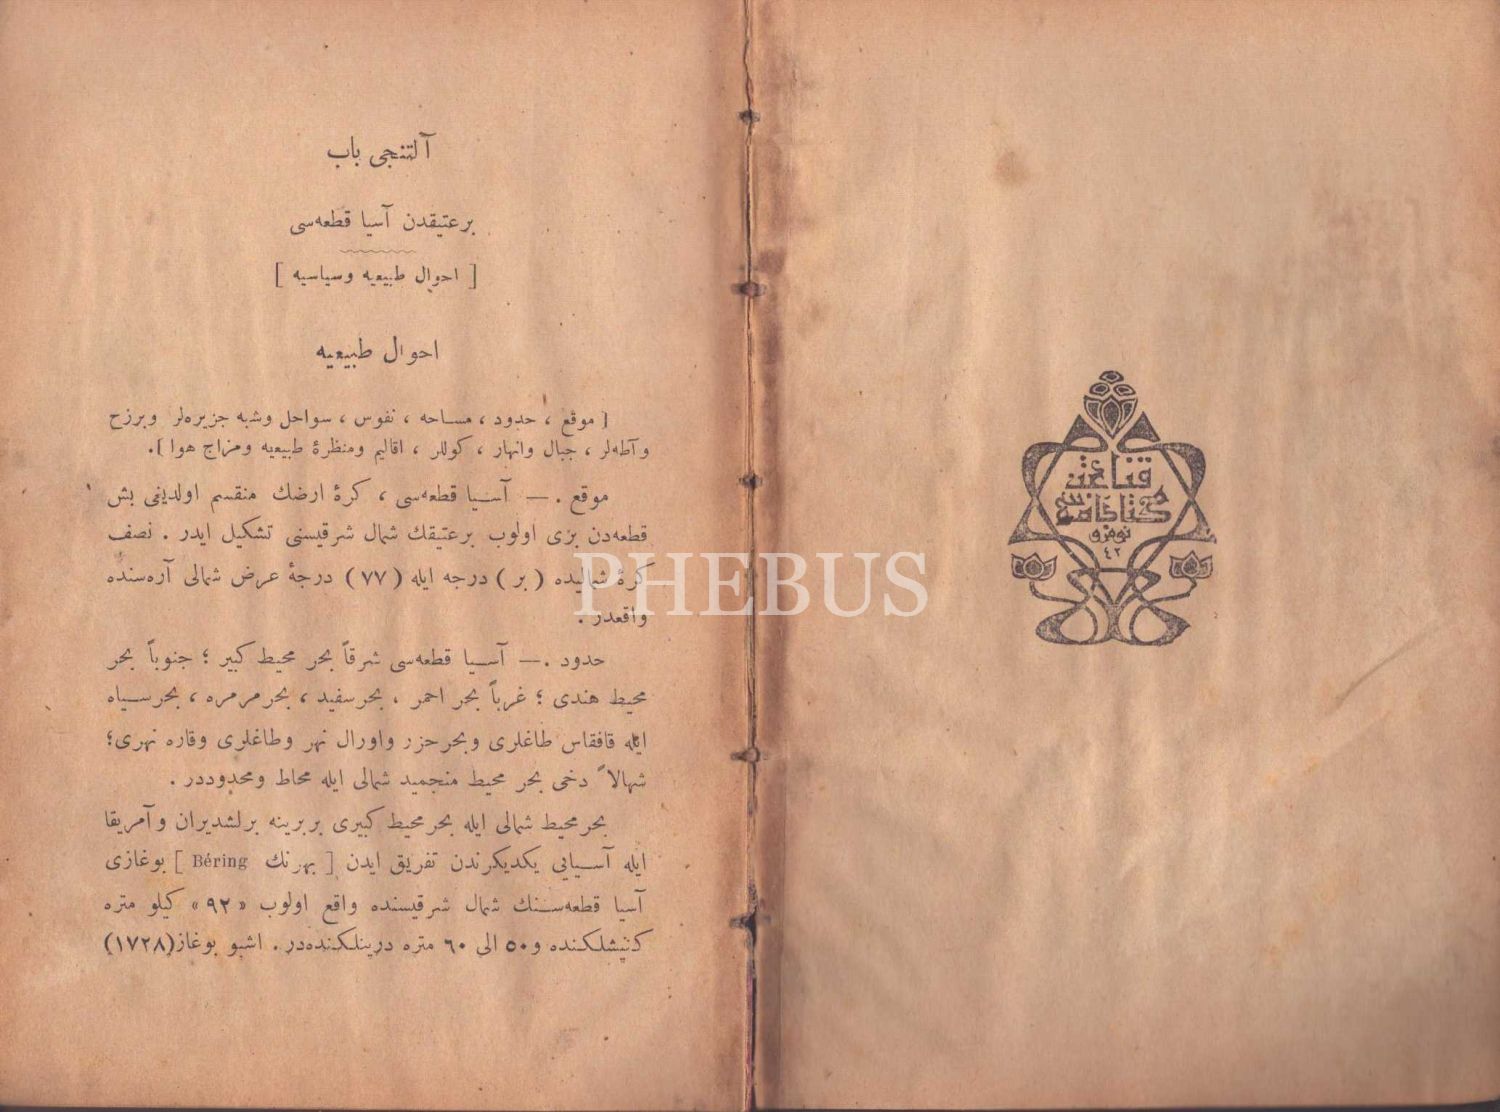 قناعت
كتابخانه‌سی
نومرو
٤٢
آلتنجی باب
برعتیقدن آسیا قطعه‌سی
[ احوال طبیعیه وسیاسیه ]
احوال طبیعیه
[ موقع ، حدود ، مساحه ، نفوس ، سواحل وشبه جزیره‌لر وبرزخ
وآطه‌لر ، جبال وانهار ، كوللر ، اقالیم ومنظرۀ طبیعیه ومزاج هوا ] .
موقع . — آسیا قطعه‌سی ، كرۀ ارضك منقسم اولدیغی بش
قطعه‌دن بری اولوب برعتیقك شمال شرقیسنی تشكیل ایدر . نصف
كرۀ شمالیده ( بر ) درجه ایله (٧٧) درجۀ عرض شمالی آره‌سنده
واقعدر .
حدود . — آسیا قطعه‌سی شرقاً بحر محیط كبیر ؛ جنوباً بحر
محیط هندی ؛ غرباً بحر احمر ، بحرسفید ، بحرمرمره ، بحرسیاه
ایله قافقاس طاغلری وبحرحزر واورال نهر وطاغلری وقاره نهری ؛
شمالاً دخی بحر محیط منجمید شمالی ایله محاط ومحدوددر .
بحرمحیط شمالی ایله بحرمحیط كبیری بربرینه برلشدیران وآمریقا
ایله آسیایی یكدیكرندن تفریق ایدن [ بهرنك Béring ] بوغازی
آسیا قطعه‌سنك شمال شرقیسنده واقع اولوب « ٩٢ » كیلو متره
كنیشلكنده و ٥٠ الی ٦٠ متره درینلكنده‌در . اشبو بوغاز (١٧٢٨)
PHEBUS